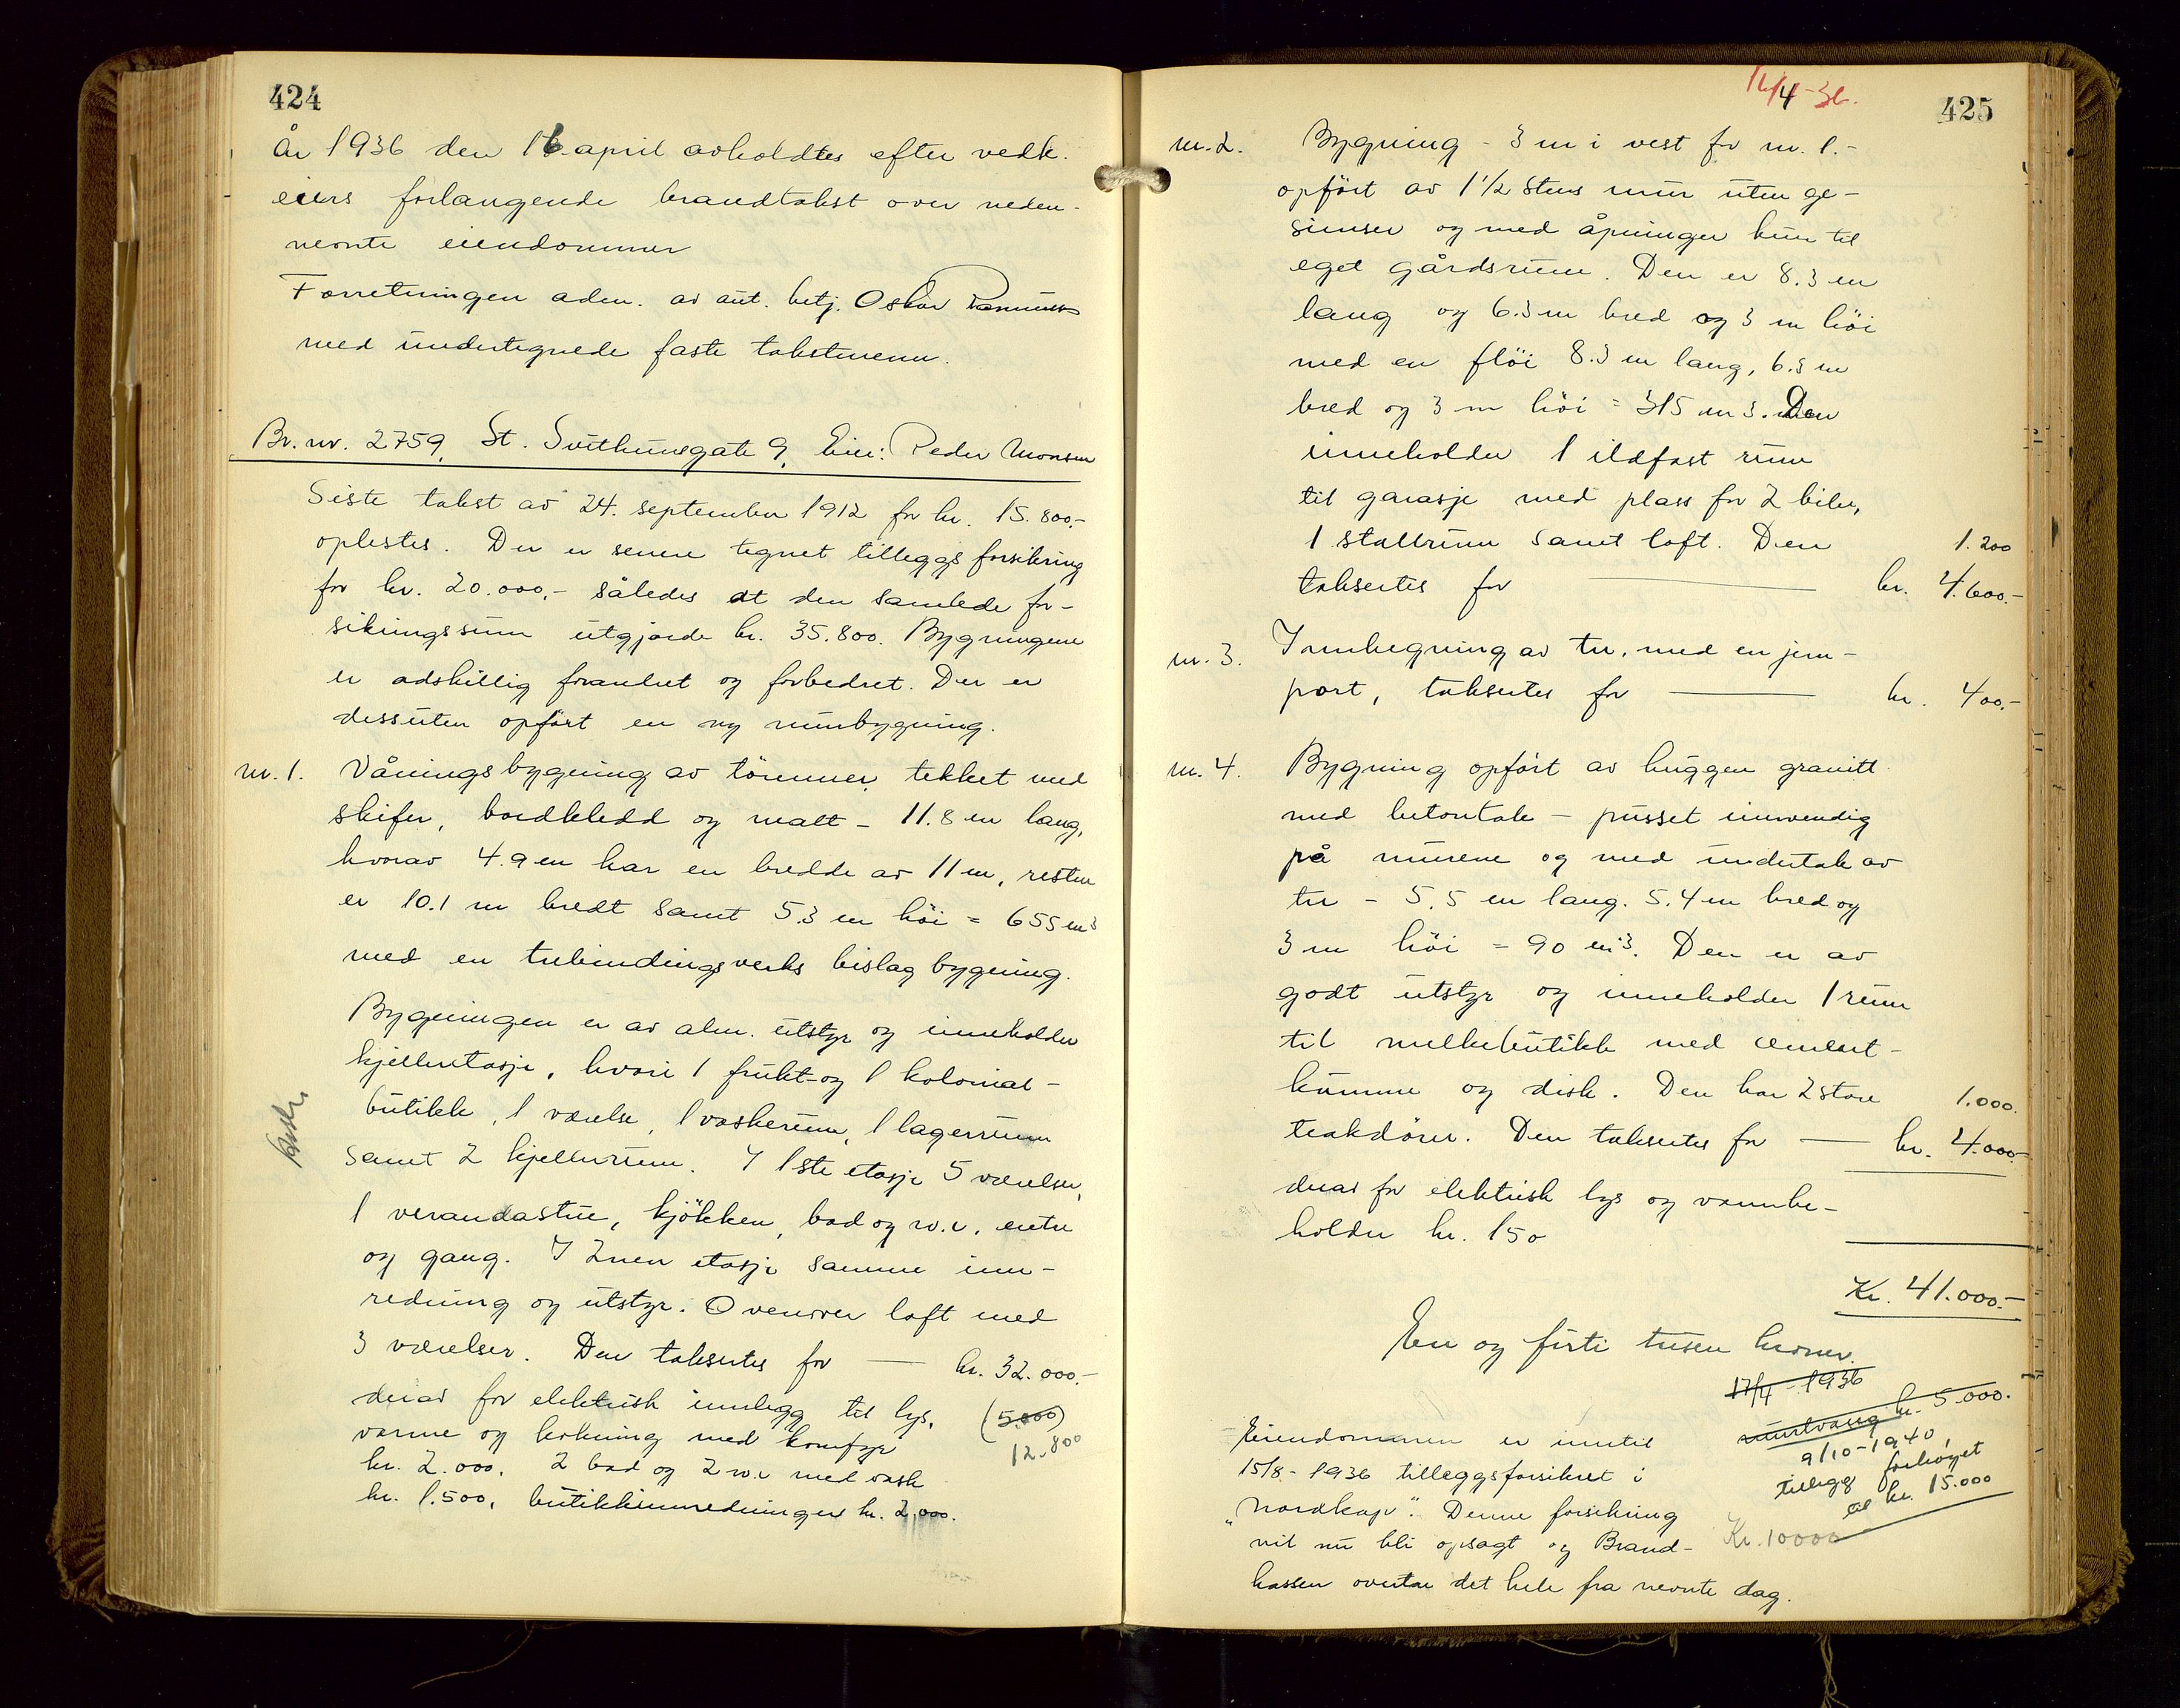 424
År 1936 den 16. april avholdtes efter vedk.
eiers forlangende brandtakst over neden-
nevnte eiendommer
Forretningen adm. av aut. betj. Oskar Rasmussen
med undertegnede faste takstmenn.
Br. nr. 2759, St. Svithunsgate 9, Eier: Peder Monsen
Siste takst av 24. september 1912 for kr. 15.800.-
oplestes. Der er senere tegnet tilleggsforsikring
for kr. 20.000,- således at den samlede for-
sikringssum utgjorde kr. 35.800. Bygningene
er adskillig forandret og forbedret. Der er
dessuten opført en ny murbygning.
nr. 1. Våningsbygning av tömmer, tekket med
skifer, bordkledd og malt - 11.8 m lang,
hvorav 4.9 m har en bredde av 11 m, resten
er 10.1 m bredt samt 5.3 m höi = 655 m3
med en trebindingsverks bislagbygning.
Bygningen er av alm. utstyr og inneholder
kjelleretasje, hvori 1 frukt- og 1 kolonial-
butikk, 1 værelse, 1 vaskerum, 1 lagerrum
samt 2 kjellerrum. I 1ste etasje 5 værelser,
1 verandastue, kjökken, bad og w.c., entre
og gang. I 2nen etasje samme inn-
redning og utstyr. Ovenover loft med
3 værelser. Den taksertes for — kr. 32.000.-
derav for elektrisk innlegg til lys, (5.000)
varme og kokning med komfyr 12.800
kr. 2.000, 2 bad og 2 w.c. med vask
kr. 1.500, butikkinnredninger kr. 2.000.
16/4-36.
425
nr. 2. Bygning - 3 m i vest for nr. 1.-
opført av 1 1/2 stens mur uten ge-
simser og med åpninger kun til
eget gårdsrum. Den er 8.3 m
lang og 6.3 m bred og 3 m höi
med en flöi 8.3 m lang, 6.3 m
bred og 3 m höi = 315 m3. Den
inneholder 1 ildfast rum
til garasje med plass for 2 biler,
1 stallrum samt loft. Den 1.200
taksertes for — kr. 4.600.-
nr. 3. Innhegning av tre, med en jern-
port, taksertes for — kr. 400.-
nr. 4. Bygning opført av huggen granitt
med betontak - pusset innvendig
på murene og med undertak av
tre - 5.5 m lang. 5.4 m bred og
3 m höi = 90 m3. Den er av
godt utstyr og inneholder 1 rum
til melkebutikk med cement-
kumme og disk. Den har 2 store 1.000.
teakdører. Den taksertes for — kr. 4.000.-
derav for elektrisk lys og vannbe-
holder kr. 150
Kr. 41.000.-
En og førti tusen kroner.
17/4-1936
kr. 5.000.
9/10-1940,
tillegg forhøyet
til kr. 15.000
Kr. 10000
Eiendommen er inntil
15/8-1936 tilleggsforsikret i
"Nordkap". Denne forsikring
vil nu bli opsagt og Brand-
kassen overtar det hele fra nevnte dag.